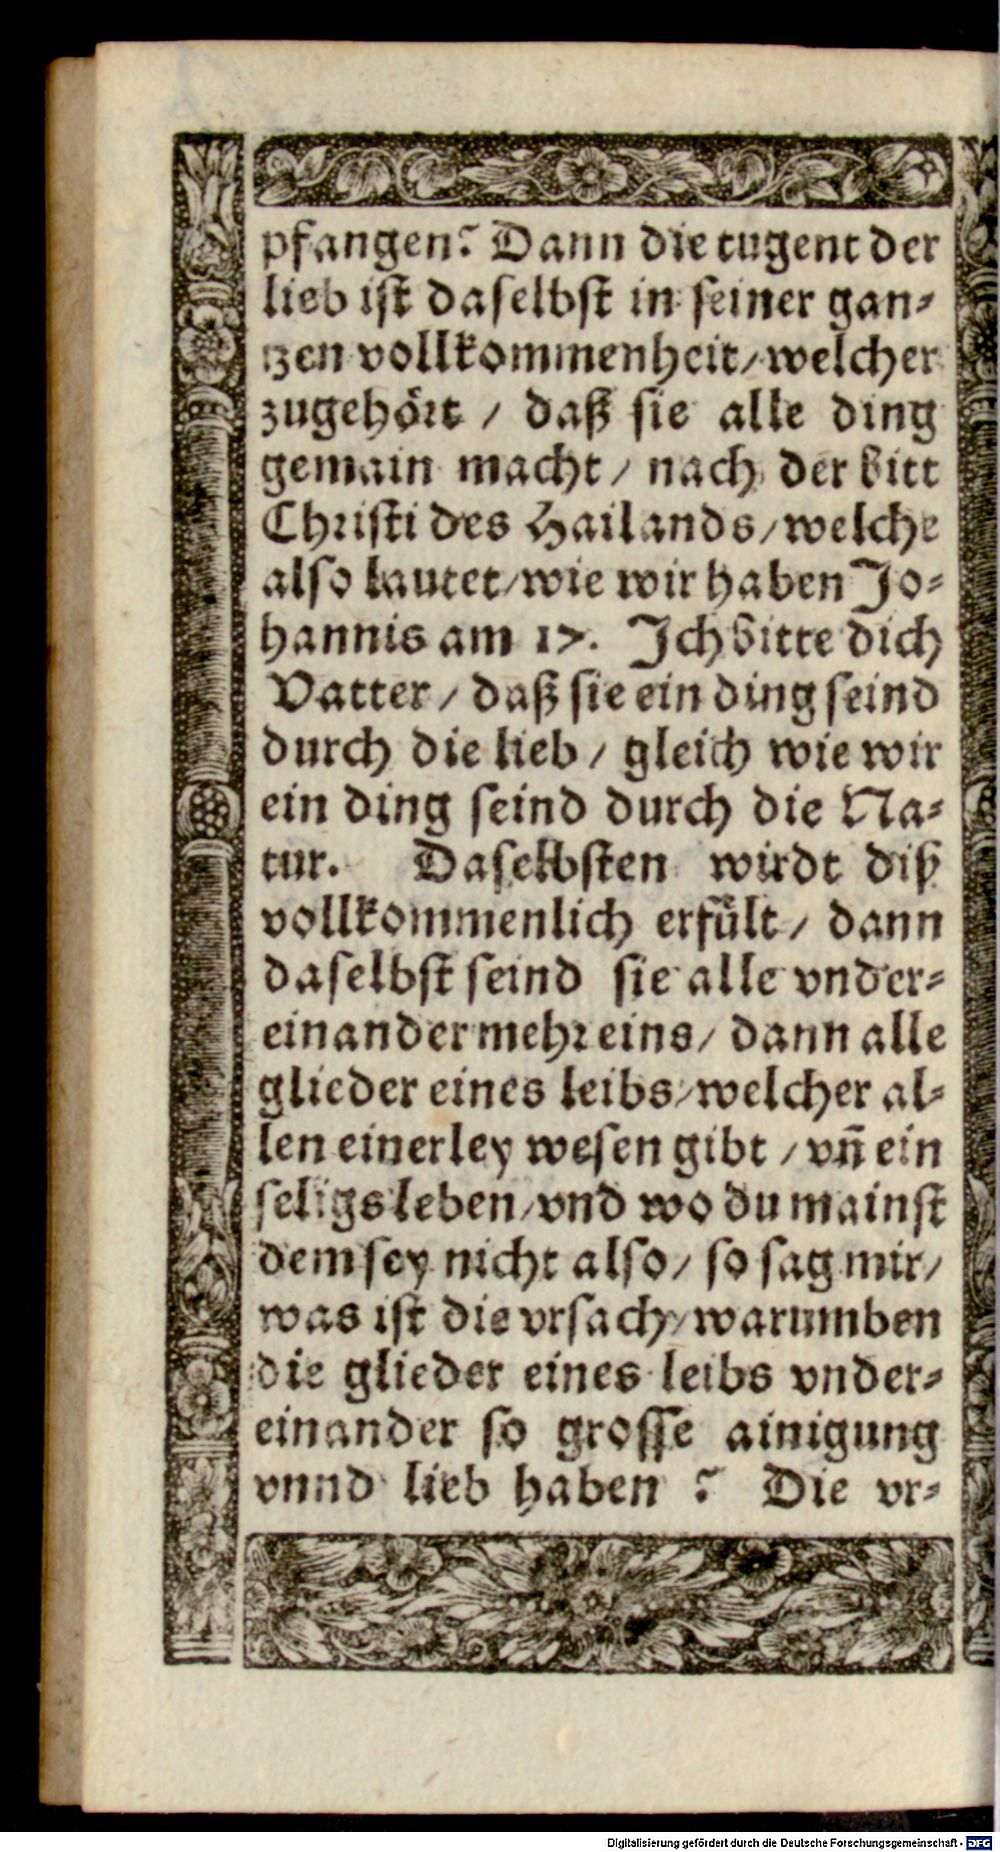 pfangen? Dann die tugent der
lieb ist daselbst in seiner gan-
tzen vollkommenheit/ welcher
zugehört / daß sie alle ding
gemain macht/ nach der bitt
Christi des Hailands/ welche
also lautet/ wie wir haben Jo-
hannis am 17. Ich bitte dich
Vatter/ daß sie ein ding seind
durch die lieb/ gleich wie wir
ein ding seind durch die Na-
tur. Daselbsten wirdt diß
vollkommenlich erfült/ dann
daselbst seind sie alle vnder-
einander mehr eins/ dann alle
glieder eines leibs/ welcher al-
len einerley wesen gibt / vñ ein
seligs leben/ vnd wo du mainst
dem sey nicht also/ so sag mir/
was ist die vrsach/ warumben
die glieder eines leibs vnder-
einander so grosse ainigung
vnnd lieb haben ? Die vr-
Digitalisierung gefördert durch die Deutsche Forschungsgemeinschaft - DFG